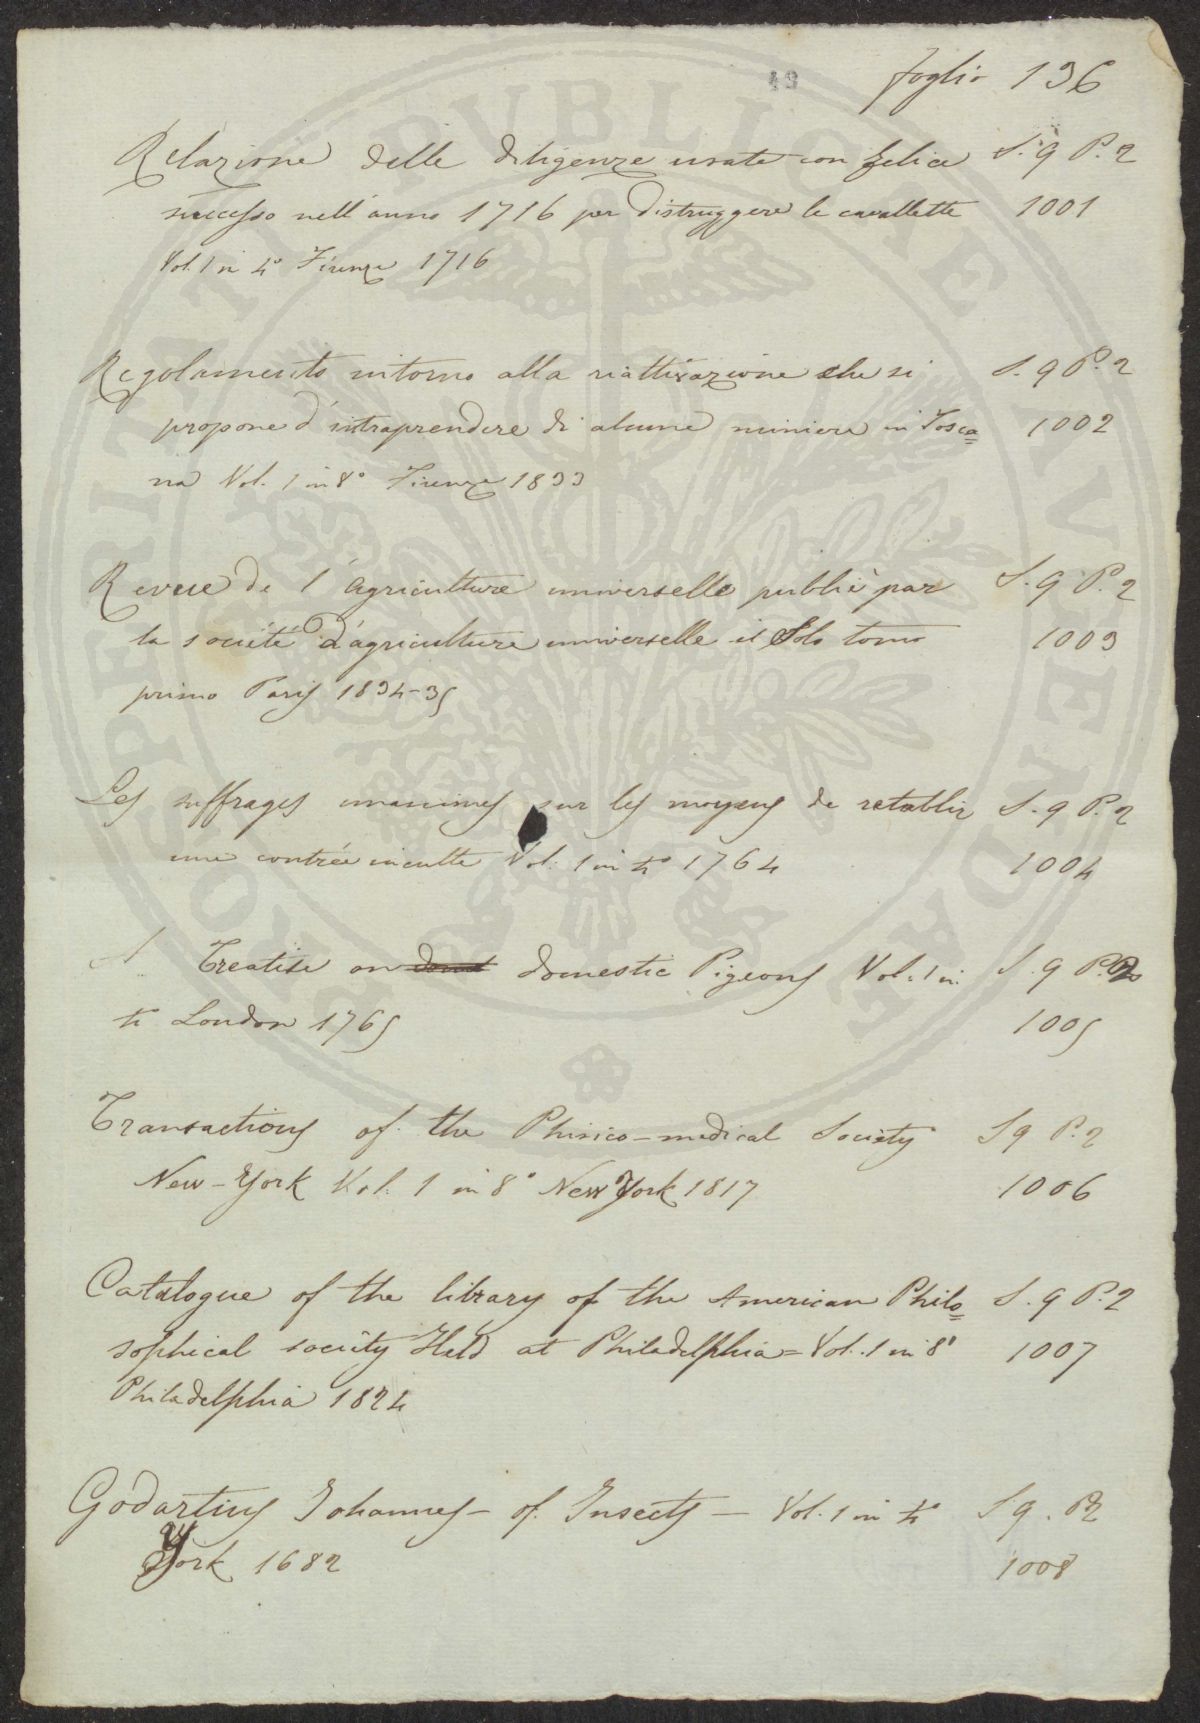 49
foglio 136
Relazione delle diligenze usate con felice S. 9 P. 2
successo nell'anno 1716 per distruggere le cavallette 1001
Vol. 1 in 4° Firenze 1716
Regolamento intorno alla riattivazione che si S. 9 P. 2
propone d'intraprendere di alcune miniere in Tosca= 1002
na Vol. 1 in 8° Firenze 1833
Revue de l'agriculture universelle publié par S. 9 P. 2
la société d'agriculture universelle il Solo tomo 1003
primo Paris 1834-35
Les suffrages unanimes sur les moyens de retablir S. 9 P. 2
une contrée inculte Vol. 1 in 4° 1764 1004
A Treatise on domestic Pigeons Vol. 1 in S. 9 P. 2
4° London 1765 1005
Transactions of the Phisico-medical Society S 9 P. 2
New-York Vol. 1 in 8° New York 1817 1006
Catalogue of the library of the American Philo= S. 9 P. 2
sophical society Held at Philadelphia = Vol. 1 in 8° 1007
Philadelphia 1824
Godartius Johannes - of Insects - Vol. 1 in 4° S 9. P2
York 1682 1008
PROSPERITATI PUBLICAE AUGENDAE